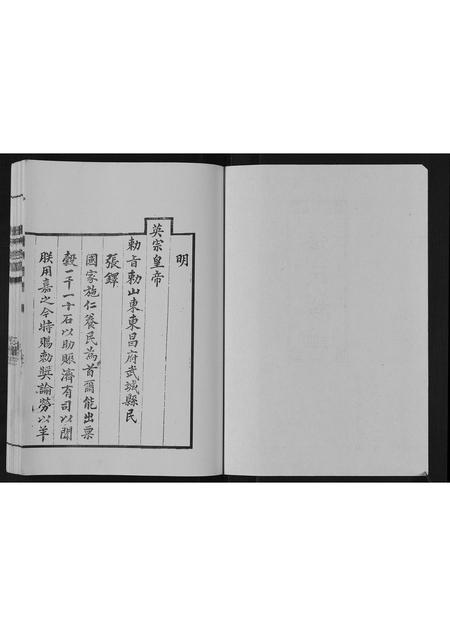 明
英宗皇帝
勅旨勅山東東昌府武城縣民
張鐸
國家施仁養民為首爾能出粟
穀一千一十石以助賑濟有司以聞
朕用嘉之今特賜勅奬諭勞以羊